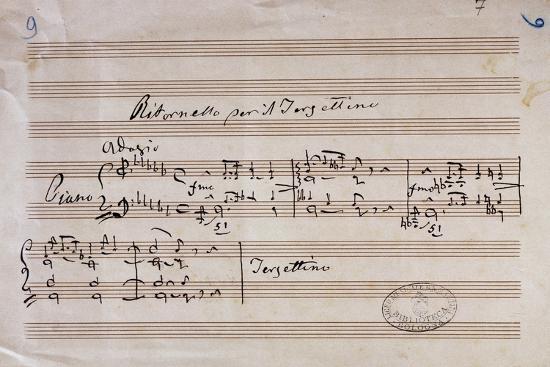 9
7
6
Ritornello per il Terzettino
Adagio
Piano
fmo
fmo
51
51
Terzettino
BIBLIOTECA
BOLOGNA